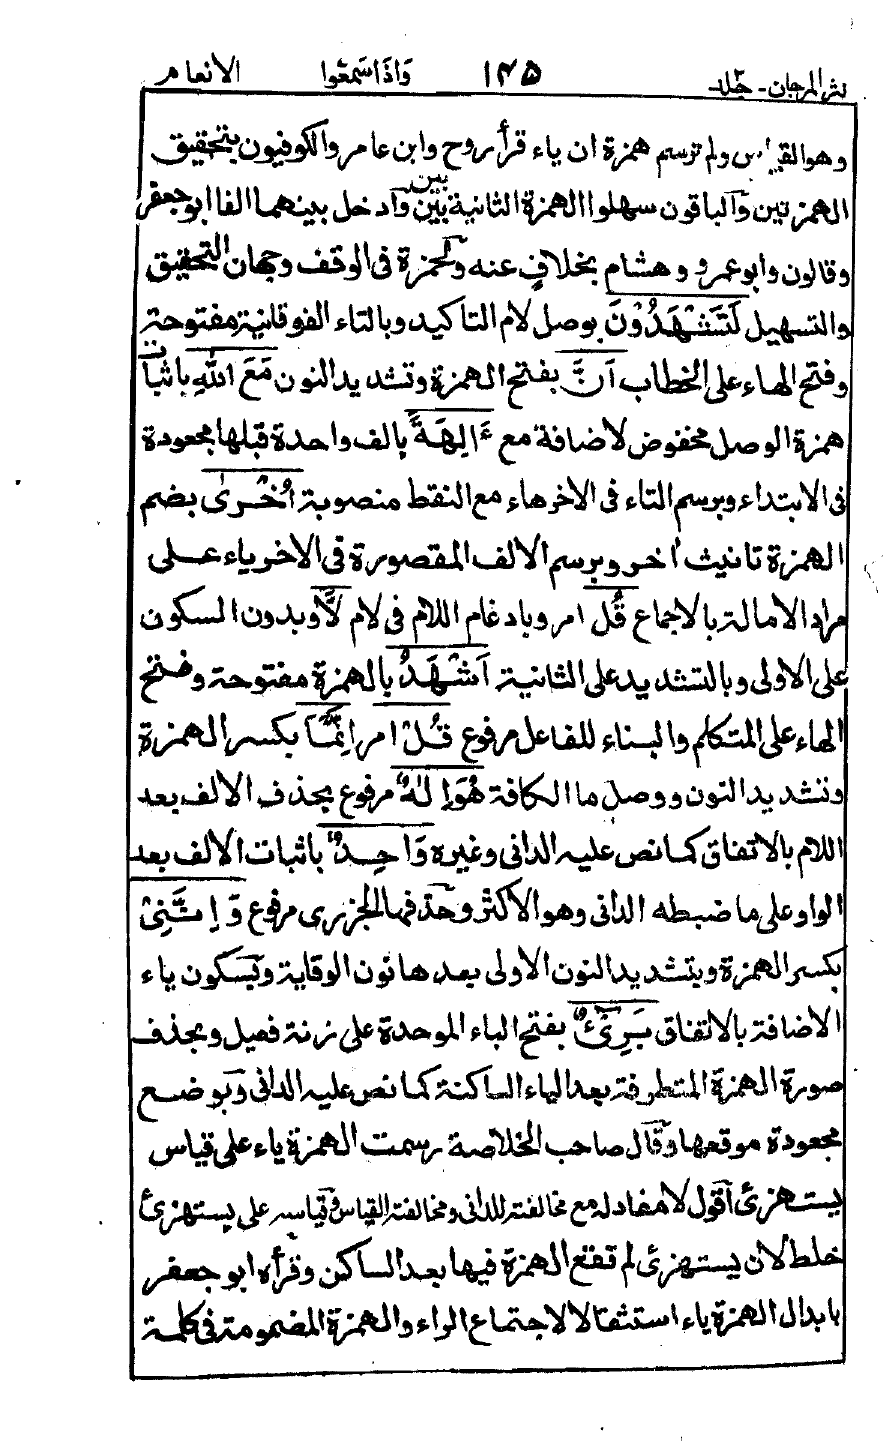 نثر المرجان - جلد ٢ ١٤٥ وَاذَا سَمِعُوا الانعام
وهوالقياس ولم ترسم همزة ان ياء قرأ روح وابن عامر والكوفيون بتحقيق
الهمزتين وآلباقون سهلوا الهمزة الثانية بين بين وآدخل بينهما الفا ابو جعفر
وقالون وابوعمرو وهشام بخلافٍ عنه ولحمزة فى الوقف وجهان التحقيق
والتسهيل لَتَشْهَدُوْنَ بوصل لام التاكيد وبالتاء الفوقانية مفتوحة
وفتح الهاء على الخطاب اَنَّ بفتح الهمزة وتشديد النون مَعَ اللهِ باثبات
همزة الوصل مخفوض لاضافة مع ءَالِهَةً بالف واحدة قبلها مجعودة
فى الابتداء وبرسم التاء فى الاخرهاء مع النقط منصوبة اُخْرىٰ بضم
الهمزة تانيث اٰخر وبرسم الالف المقصورة فى الاخرياء على
مراد الامالة بالاجماع قُل امر وبادغام اللام فى لام لَّا وبدون السكون
على الاولى وبالتشديد على الثانية اَشْهَدُ بالهمزة مفتوحة وفتح
الهاء على المتكلم والبناء للفاعل مرفوع قُلْ امر اِنَّمَا بكسر الهمزة
وتشديد النون ووصل ما الكافة هُوَ اِلٰهٌ مرفوع بحذف الالف بعد
اللام بالاتفاق كما نص عليه الدانى وغيره وَاحِدٌ باثبات الالف بعد
الواو على ما ضبطه الدانى وهو الاكثر وحذفها الجزرى مرفوع وَاِنَّنِىْ
بكسر الهمزة وبتشديد النون الاولى بعدها نون الوقاية وبسكون ياء
الاضافة بالاتفاق بَرِىْءٌ بفتح الباء الموحدة على زنة فعيل وبحذف
صورة الهمزة المتطرفة بعد الياء الساكنة كما نص عليه الدانى وبوضع
مجعودة موقعها وقال صاحب الخلاصة رسمت الهمزة ياء على قياس
يستهزئ آقول لا مفاد له مع مخالفته للدانى ومخالفته القياس وقياسه على يستهزئ
خلط لان يستهزئ لم تقع الهمزة فيها بعد الساكن وقرأه ابو جعفر
بابدال الهمزة ياء استثقالا لاجتماع الراء والهمزة المضمومة فى كلمة